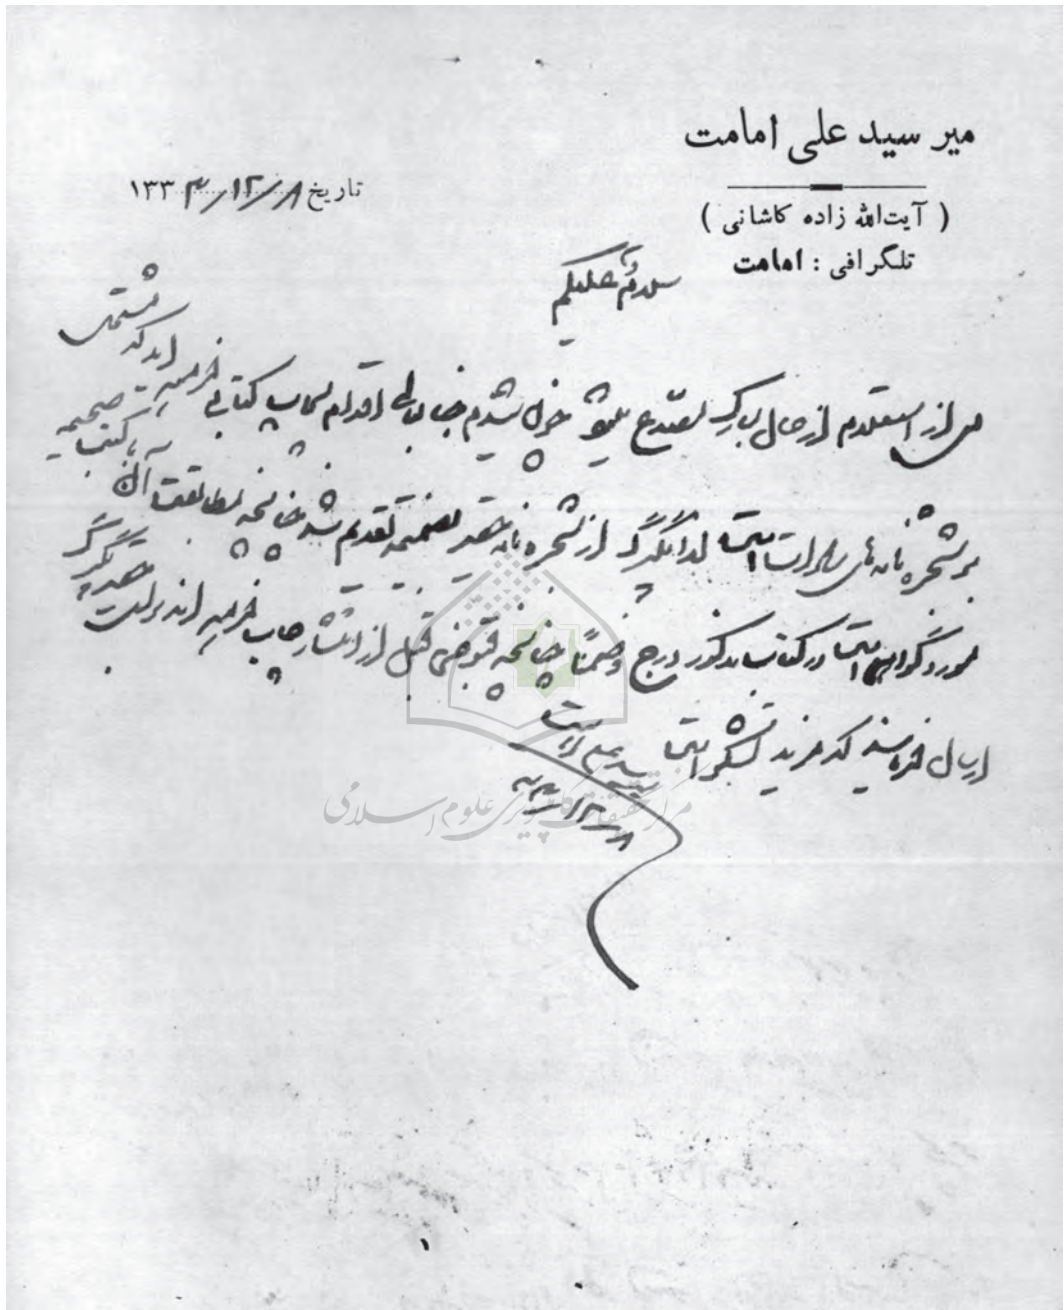 میر سید علی امامت
( آیت‌الله زاده کاشانی )
تلگرافی : امامت
تاریخ ۸ر۱۲ر۱۳۳۴
سلام علیکم
پس از استعلام از حال مبارک مصدع میشو خوش شدم جنابعالی اقدام بچاپ کتابی فرموده اید که مشتمل
بر شجره نامه های سادات است لذا از شجره نامه حقیر بضمیمه تقدیم شد چنانچه مطابقت آن با کتب صحیحه
مورد گواهی است در کتاب مذکور درج و ضمناً چنانچه قبوض قبل از انتشار چاپ فرموده اند برای حقیر
ارسال فرمایند که مزید تشکر است
سید علی امامت
۸ر۱۲ر۳۴
مرکز تحقیقات کامپیوتری علوم اسلامی
۱